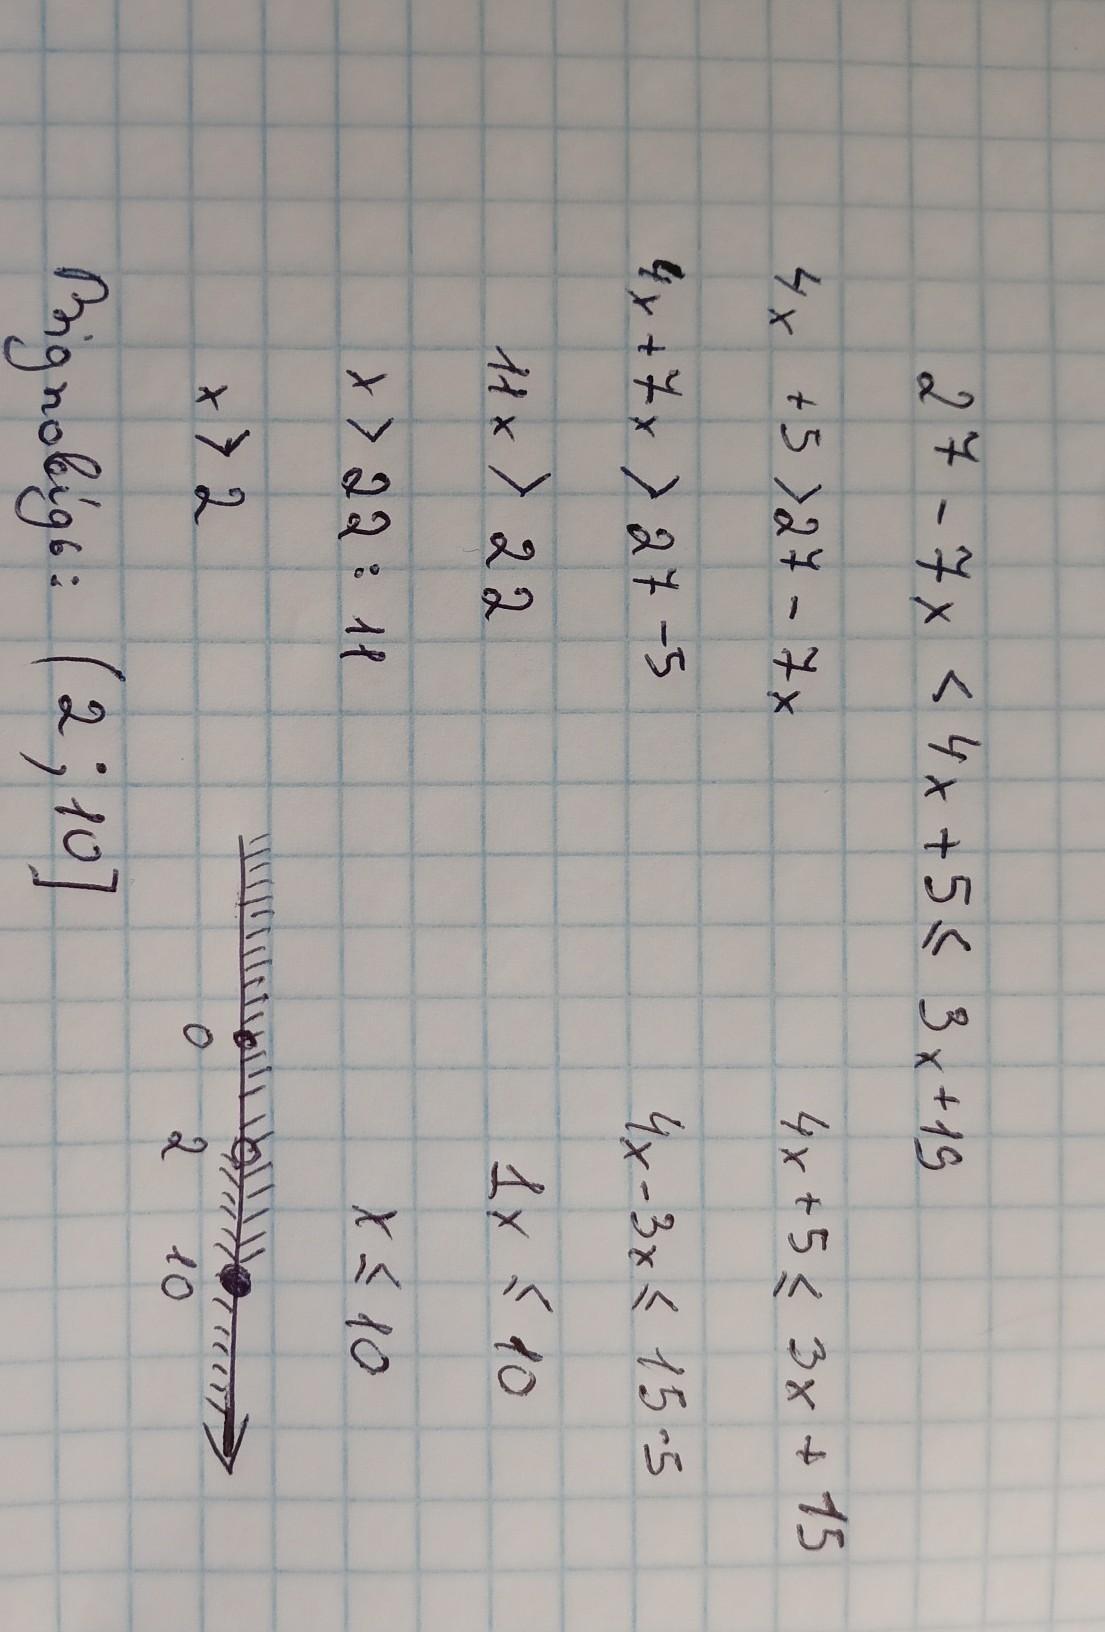 27 - 7x < 4x + 5 ≤ 3x + 15
4x + 5 > 27 - 7x 4x + 5 ≤ 3x + 15
4x + 7x > 27 - 5 4x - 3x ≤ 15 - 5
11x > 22 1x ≤ 10
x > 22 : 11 x ≤ 10
x > 2
0 2 10
Відповідь: (2; 10]